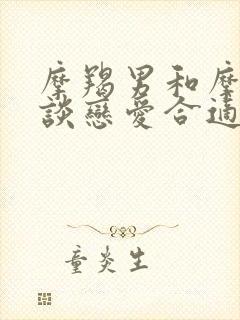 摩羯男和摩
談戀愛合適
童炎生